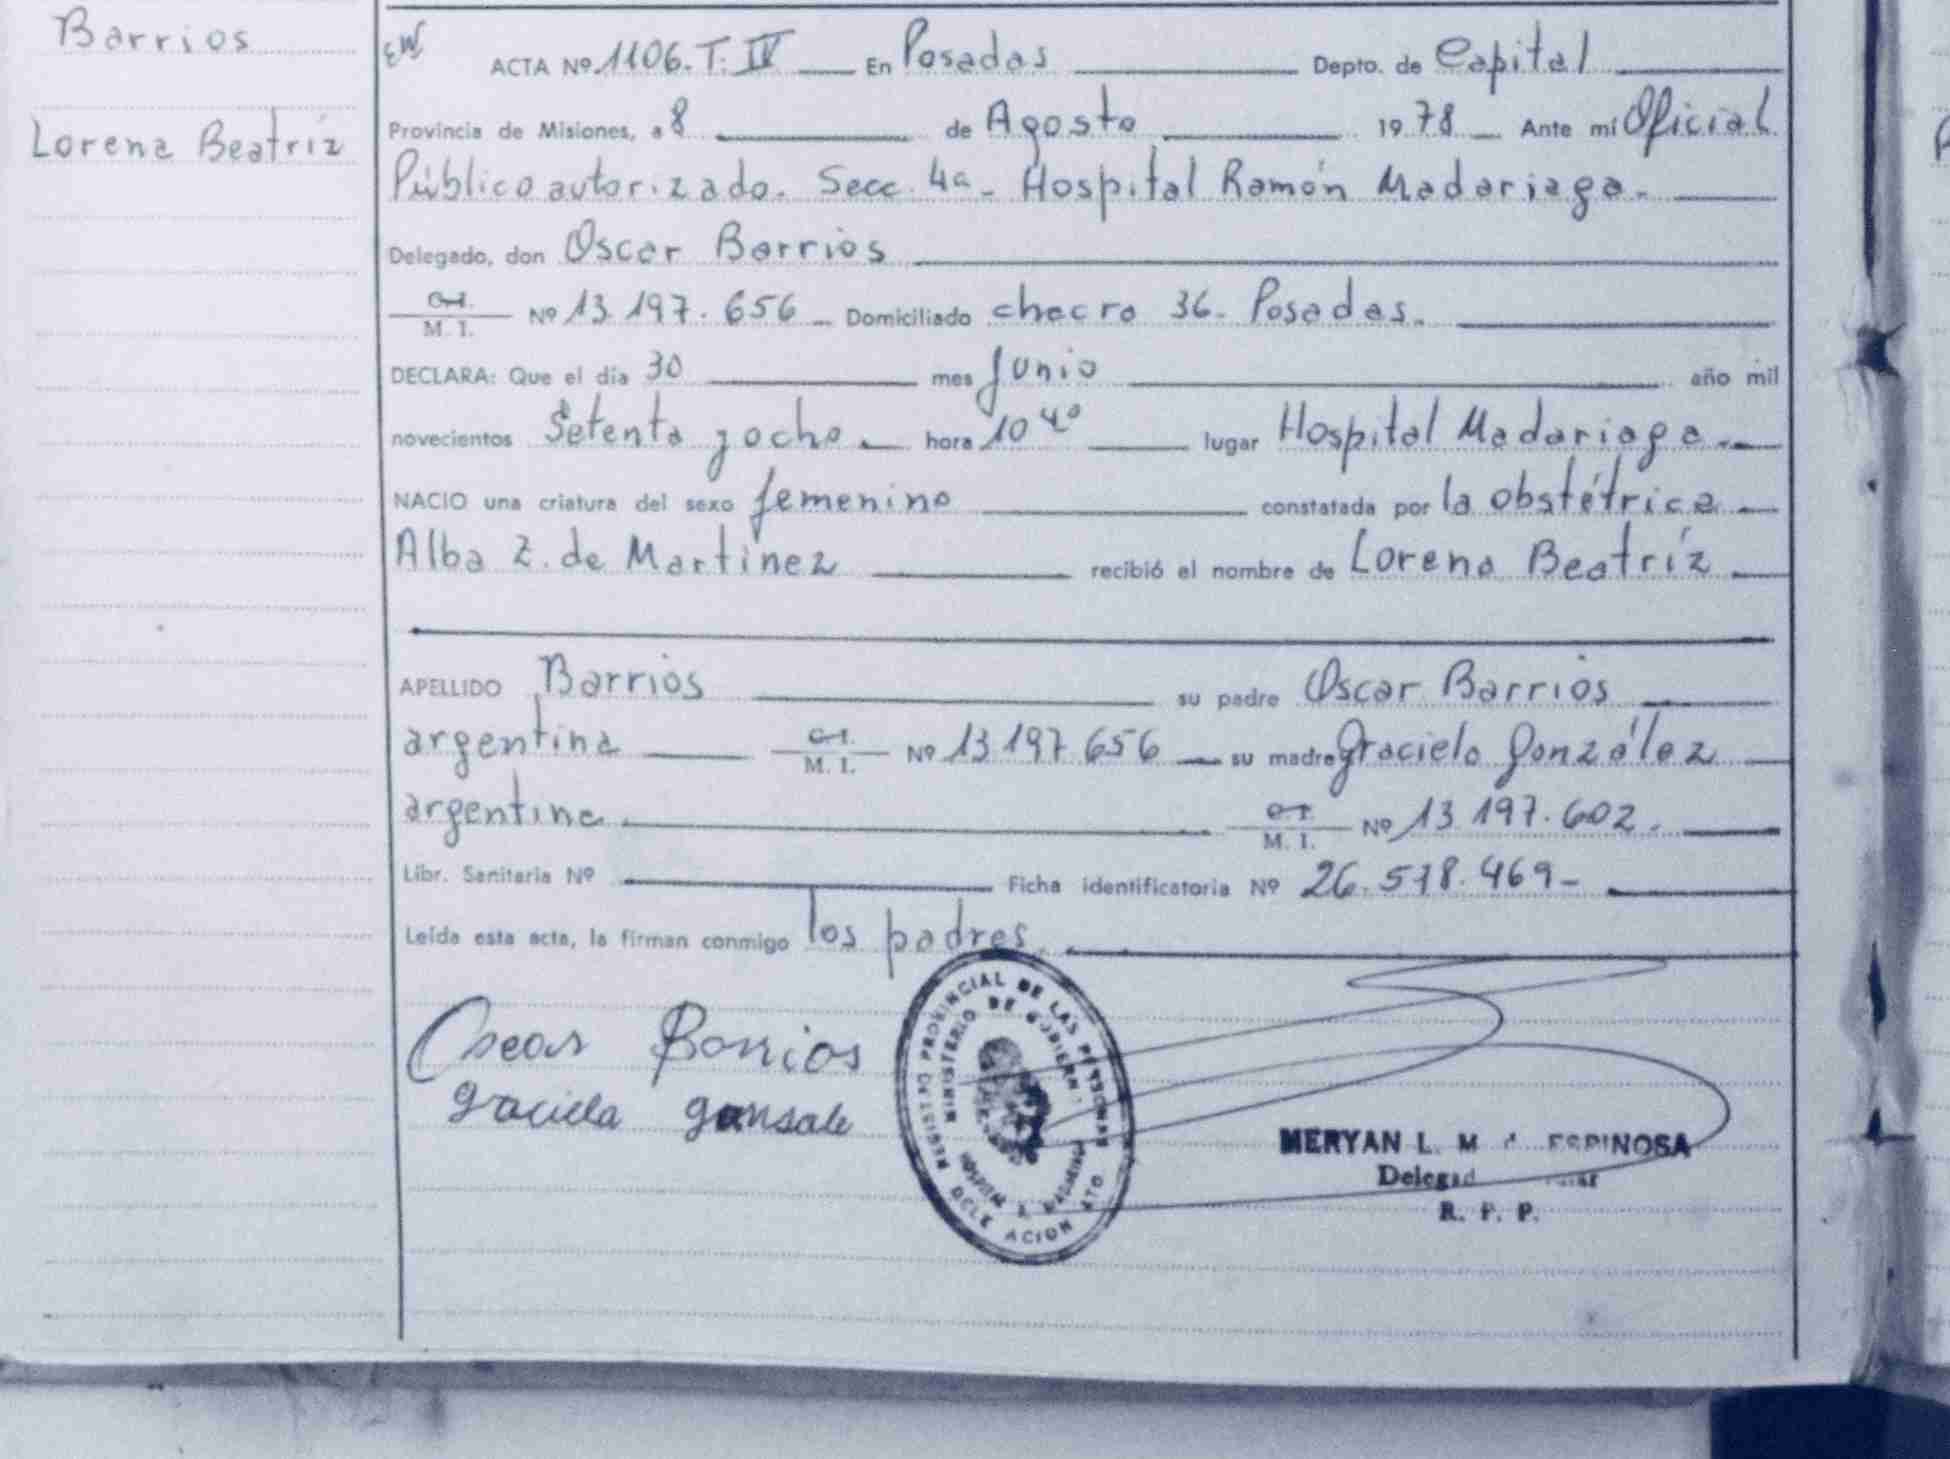 Barrios
Lorena Beatríz
ACTA Nº 1106. T: IV En Posadas Depto. de Capital
Provincia de Misiones, a 8 de Agosto 1978 Ante mí Oficial
Público autorizado. Secc. 4a - Hospital Ramón Madariaga.
Delegado, don Oscar Barrios
C.I.
M. I. Nº 13.197.656 Domiciliado chacra 36. Posadas.
DECLARA: Que el día 30 mes Junio año mil
novecientos Setenta y ocho. hora 10 40 lugar Hospital Madariaga.
NACIO una criatura del sexo femenino constatada por la obstétrica
Alba Z. de Martínez recibió el nombre de Lorena Beatríz
APELLIDO Barrios su padre Oscar Barrios
argentina C.I.
M. I. Nº 13.197.656 su madre Graciela González
argentina C.I.
M. I. Nº 13.197.602.
Libr. Sanitaria Nº Ficha identificatoria Nº 26.518.469-
Leída esta acta, la firman conmigo los padres.
Oscar Barrios
graciela gonsale
REGISTRO PROVINCIAL DE LAS PERSONAS
MINISTERIO DE GOBIERNO
HOSPITAL R. MADARIAGA
MERYAN L. M ESPINOSA
R. P. P.